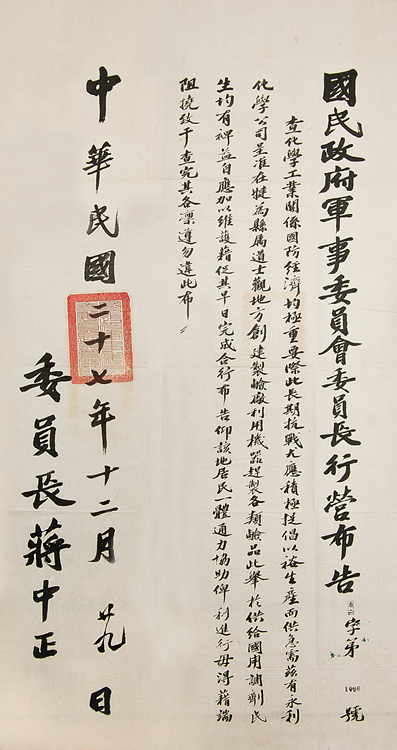 國民政府軍事委員會委員長行營布告 字第 1096 號
查化學工業關係國防經濟均極重要際此長期抗戰尤應積極提倡以裕生產而供急需茲有永利
化學公司呈准在犍為縣属道士觀地方創建製鹼廠利用機器趕製各類鹼品此舉於供給國用調劑民
生均有裨益自應加以維護藉促其早日完成合行布告仰該地居民一體通力協助俾利進行毋得藉端
阻撓致干查究其各凜遵勿違此布
中華民國二十七年十二月廿九日
委員長蔣中正